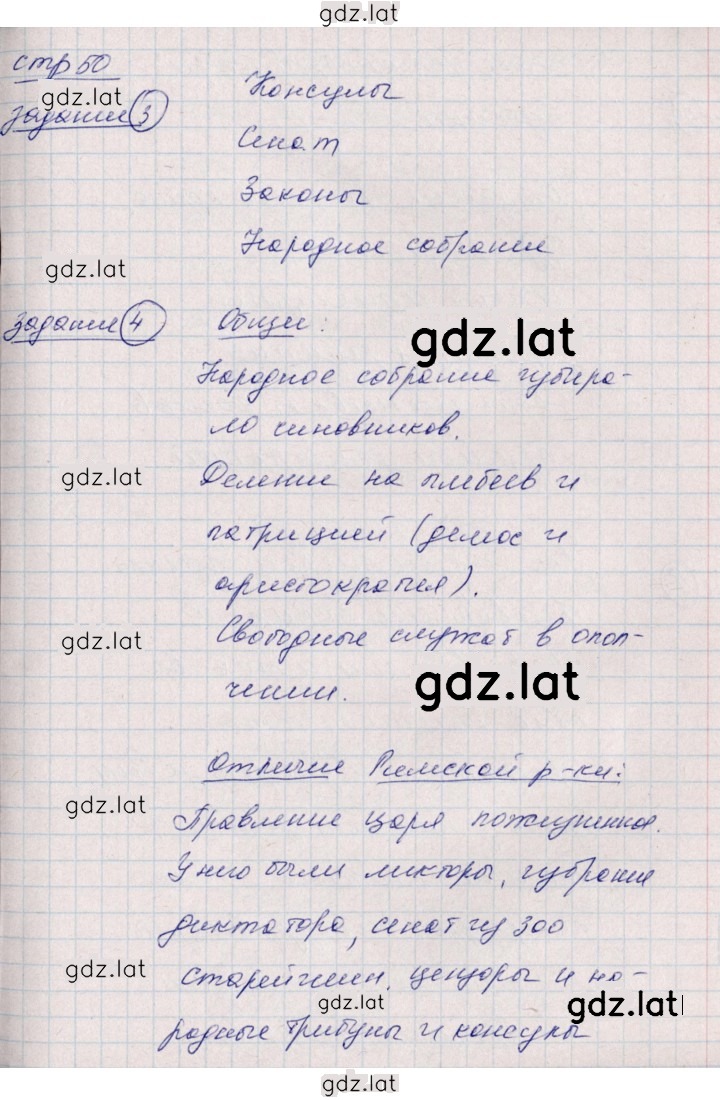 gdz.lat
стр 50
gdz.lat
Задание 3
Консулы
Сенат
Законы
Народное собрание
gdz.lat
Задание 4
Общие:
gdz.lat
Народное собрание избира-
ло чиновников.
gdz.lat
Деление на плебеев и
патрицией (демос и
аристократия).
gdz.lat
Свободные служат в опол-
чении.
gdz.lat
Отличие Римской р-ки:
gdz.lat
Правление царя пожизненное.
У него были ликторы, избрание
диктатора, сенат из 300
gdz.lat
старейшин, цензоры и на-
gdz.lat
gdz.lat
родные трибуны и консулы
gdz.lat